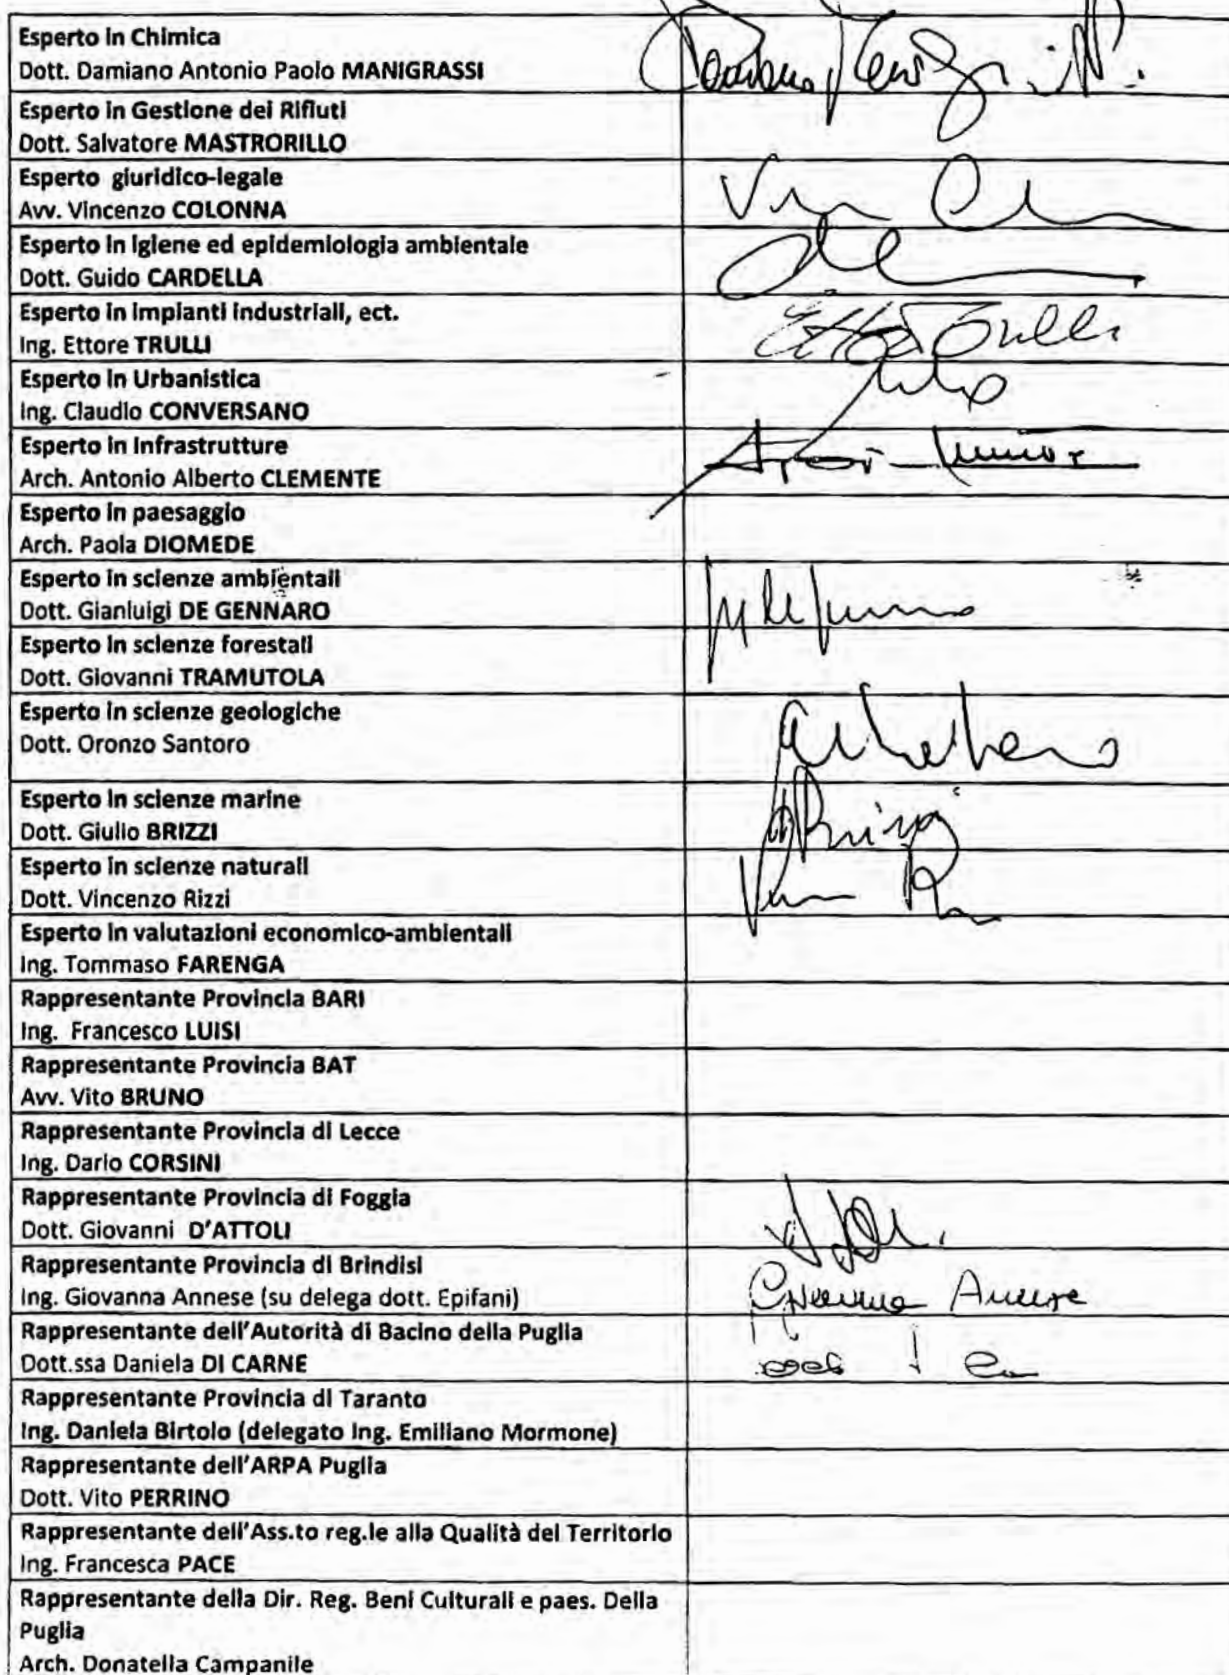 Esperto in Chimica
Dott. Damiano Antonio Paolo MANIGRASSI
Esperto in Gestione dei Rifiuti
Dott. Salvatore MASTRORILLO
Esperto giuridico-legale
Avv. Vincenzo COLONNA
Esperto in igiene ed epidemiologia ambientale
Dott. Guido CARDELLA
Esperto in impianti industriali, ect.
Ing. Ettore TRULLI
Ettore Trulli
Esperto in Urbanistica
Ing. Claudio CONVERSANO
Esperto in Infrastrutture
Arch. Antonio Alberto CLEMENTE
Esperto in paesaggio
Arch. Paola DIOMEDE
Esperto in scienze ambientali
Dott. Gianluigi DE GENNARO
Esperto in scienze forestali
Dott. Giovanni TRAMUTOLA
Esperto in scienze geologiche
Dott. Oronzo Santoro
Esperto in scienze marine
Dott. Giulio BRIZZI
Esperto in scienze naturali
Dott. Vincenzo Rizzi
Esperto in valutazioni economico-ambientali
Ing. Tommaso FARENGA
Rappresentante Provincia BARI
Ing. Francesco LUISI
Rappresentante Provincia BAT
Avv. Vito BRUNO
Rappresentante Provincia di Lecce
Ing. Dario CORSINI
Rappresentante Provincia di Foggia
Dott. Giovanni D'ATTOLI
Rappresentante Provincia di Brindisi
Ing. Giovanna Annese (su delega dott. Epifani)
Giovanna Annese
Rappresentante dell'Autorità di Bacino della Puglia
Dott.ssa Daniela DI CARNE
Rappresentante Provincia di Taranto
Ing. Daniela Birtolo (delegato Ing. Emiliano Mormone)
Rappresentante dell'ARPA Puglia
Dott. Vito PERRINO
Rappresentante dell'Ass.to reg.le alla Qualità del Territorio
Ing. Francesca PACE
Rappresentante della Dir. Reg. Beni Culturali e paes. Della
Puglia
Arch. Donatella Campanile